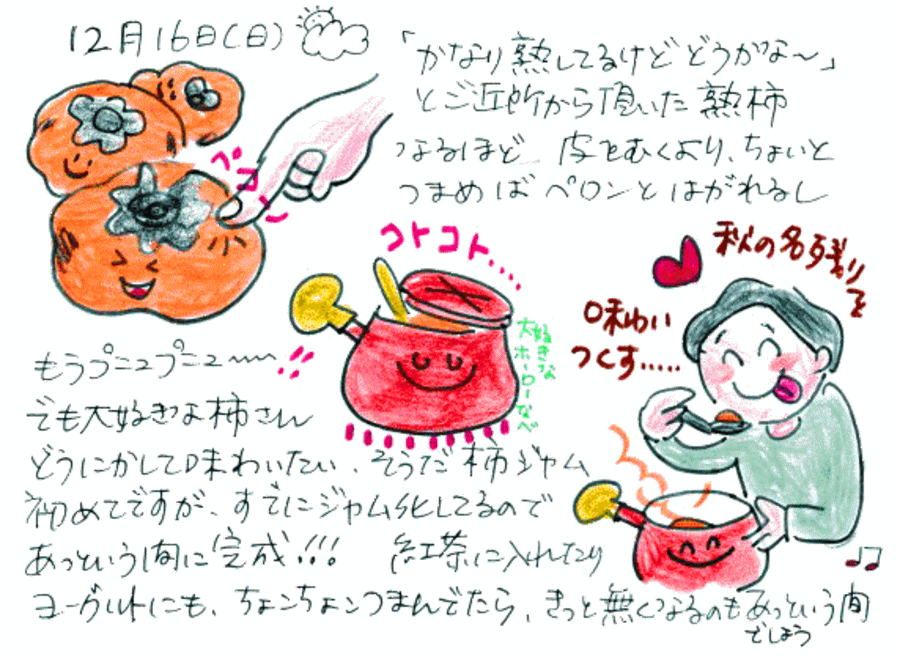 12月16日(日)
「かなり熟してるけどどうかな〜」
とご近所から頂いた熟柿
なるほど 皮をむくより、ちょいと
つまめばペロンとはがれるし
ペコン
コトコト....
大好きな
ホーローなべ
秋の名残りを
味わい
つくす.....
もうプニュプニュ〜〜
でも大好きな柿さん
どうにかして味わいたい、そうだ柿ジャム
初めてですが、すでにジャム化してるので
あっという間に完成!!! 紅茶に入れたり
ヨーグルトにも、ちょんちょんつまんでたら、きっと無くなるのもあっという間
でしょう